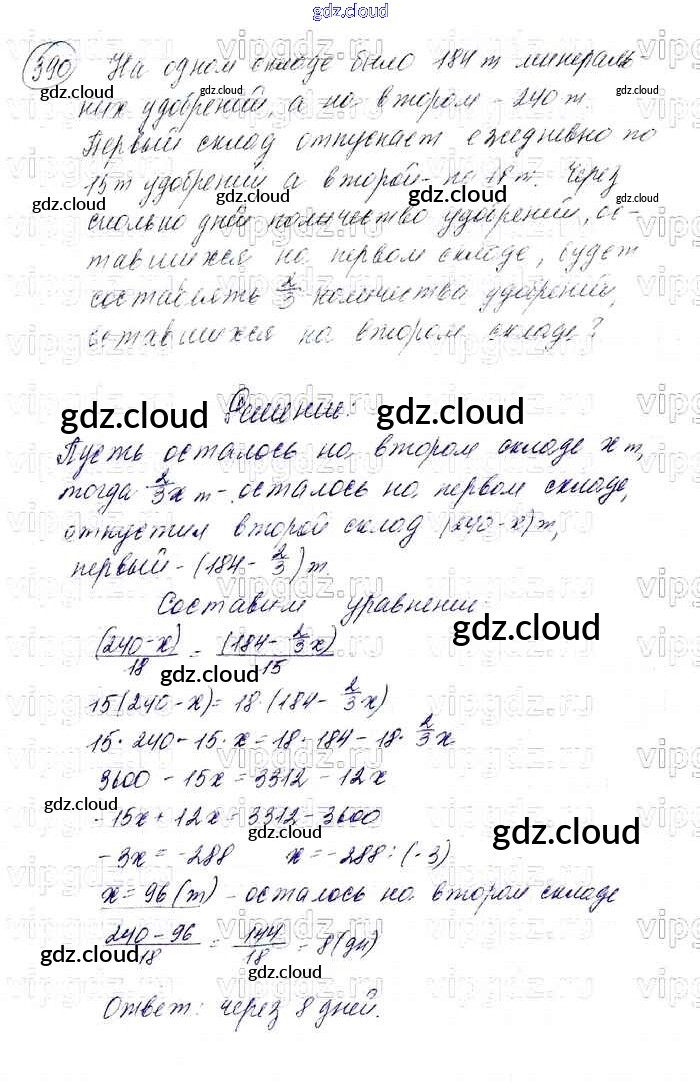 gdz.cloud
390 На одном складе было 184 т минераль-
них удобрений, а на втором - 240 т.
Первый склад отпускает ежедневно по
15 т удобрений а второй - по 18 т. Через
сколько дней количество удобрений, ос-
тавшихся на первом складе, будет
составлять 2/3 количества удобрений,
оставшихся на втором складе?
Решение:
Пусть осталось на втором складе x т,
тогда 2/3x т - осталось на первом складе,
отпустил второй склад (240-x) т,
первый - (184 - 2/3) т.
Составим уравнение
(240-x)/18 = (184 - 2/3x)/15
15(240-x) = 18·(184 - 2/3x)
15·240 - 15·x = 18·184 - 18·2/3x
3600 - 15x = 3312 - 12x
-15x + 12x = 3312 - 3600
-3x = -288 x = -288 : (-3)
x = 96 (т) - осталось на втором складе
240-96/18 = 144/18 = 8 (дн)
Ответ: через 8 дней.